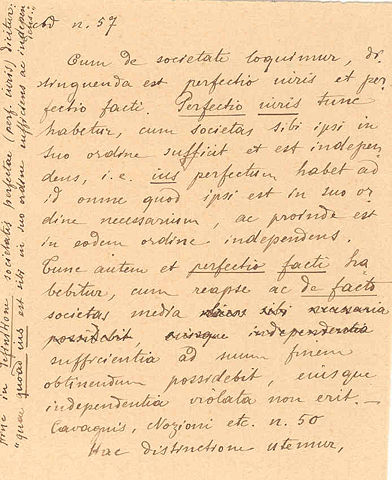 ad n. 57
Cum de societate loquimur, di-
stinguenda est perfectio iuris et per-
fectio facti. Perfectio iuris tunc
habetur, cum societas sibi ipsi in
suo ordine sufficit et est indepen
dens, i.e. ius perfectum habet ad
id omne quod ipsi est in suo or
dine necessarium, ac proinde est
in eodem ordine independens.
Tunc autem et perfectio facti ha
bebitur, cum reapse ac de facto
societas media sibi necessaria
possidebit, eiusque independentia
sufficientia ad suum finem
obtinendum possidebit, eiusque
independentia violata non erit. —
Cavagnis, Nozioni etc. n. 50
Hac distinctione utemur,
Hinc in definitione societatis perfectae (perf. iuris) dicitur:
"quae quoad ius est sibi in suo ordine sufficiens ac indepen
dens";